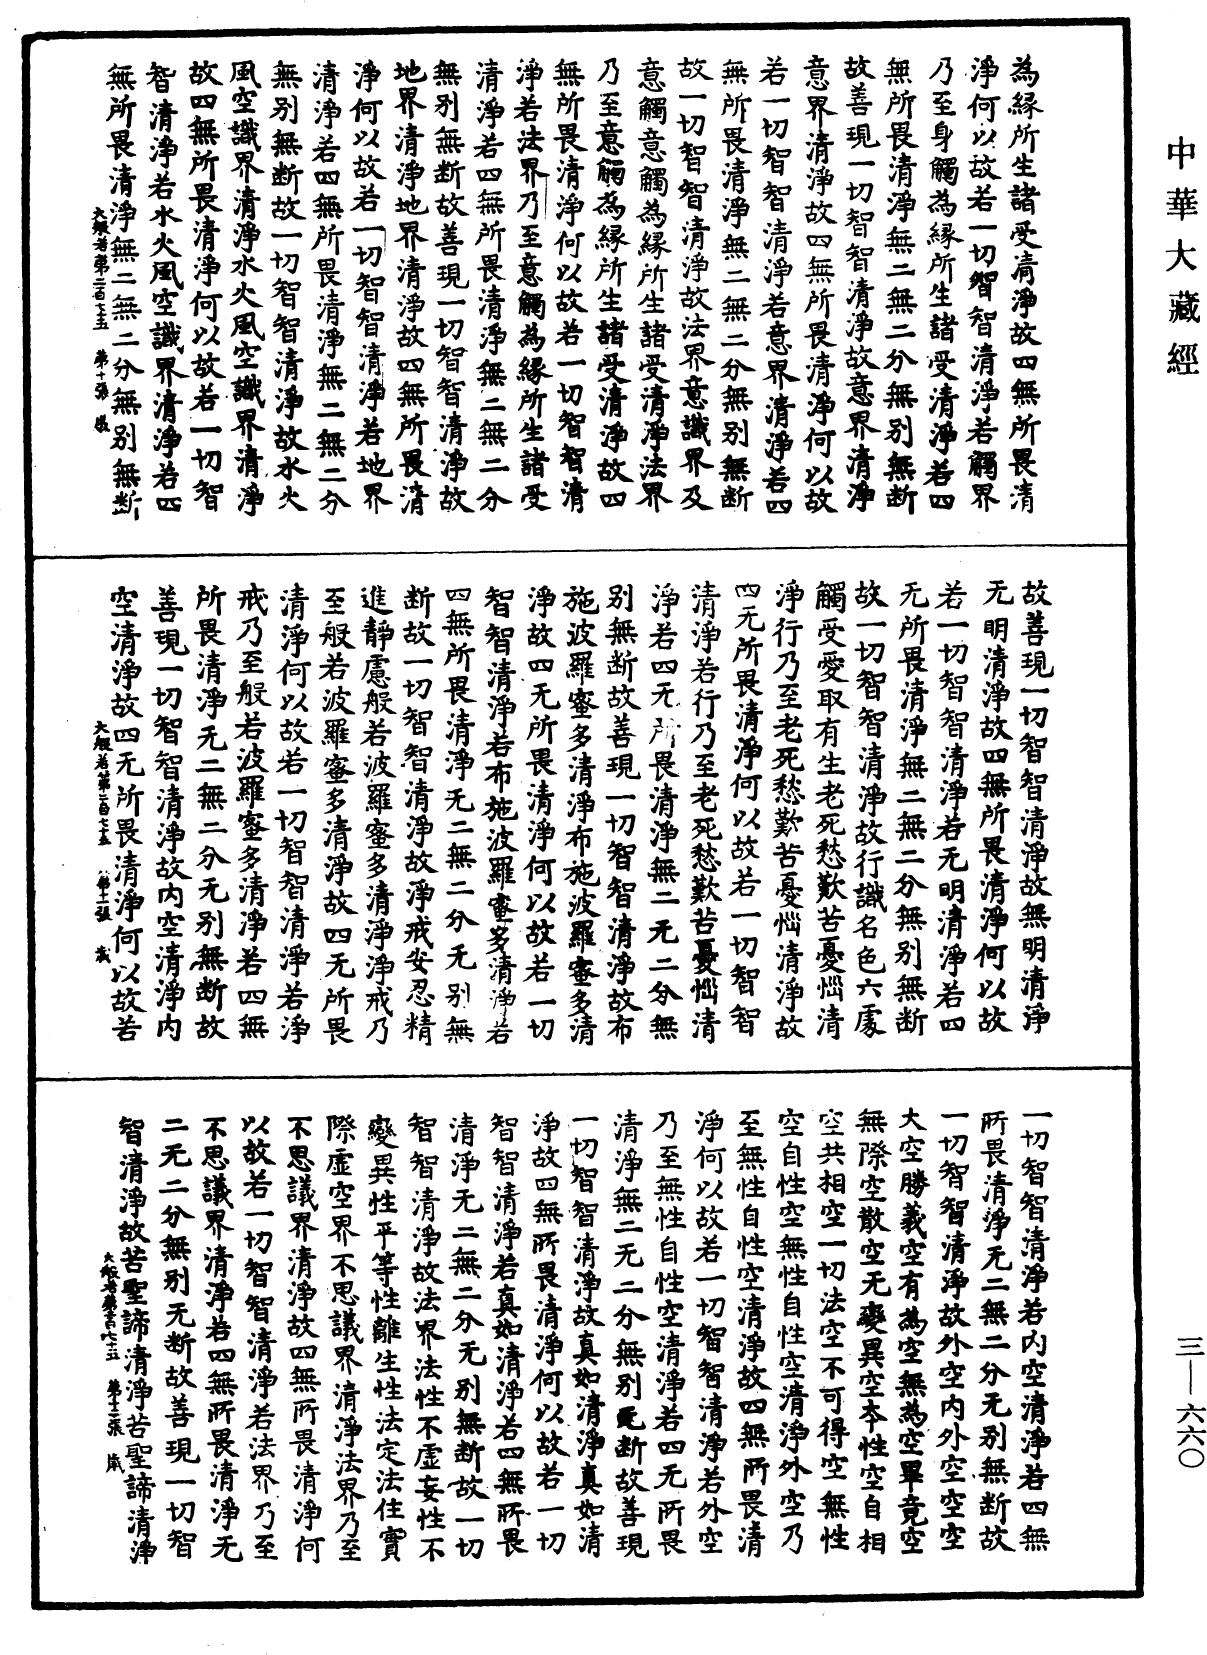 中華大藏經
為緣所生諸受清淨故四無所畏清
淨何以故若一切智智清淨若觸界
乃至身觸為緣所生諸受清淨若四
無所畏清淨無二無二分無別無斷
故善現一切智智清淨故意界清淨
意界清淨故四無所畏清淨何以故
若一切智智清淨若意界清淨若四
無所畏清淨無二無二分無別無斷
故一切智智清淨故法界意識界及
意觸意觸為緣所生諸受清淨法界
乃至意觸為緣所生諸受清淨故四
無所畏清淨何以故若一切智智清
淨若法界乃至意觸為緣所生諸受
清淨若四無所畏清淨無二無二分
無別無斷故善現一切智智清淨故
地界清淨地界清淨故四無所畏清
淨何以故若一切智智清淨若地界
清淨若四無所畏清淨無二無二分
無別無斷故一切智智清淨故水火
風空識界清淨水火風空識界清淨
故四無所畏清淨何以故若一切智
智清淨若水火風空識界清淨若四
無所畏清淨無二無二分無別無斷
大般若第二百七十五 第十張 歲
故善現一切智智清淨故無明清淨
无明清淨故四無所畏清淨何以故
若一切智智清淨若无明清淨若四
无所畏清淨無二無二分無別無斷
故一切智智清淨故行識名色六處
觸受愛取有生老死愁歎苦憂惱清
淨行乃至老死愁歎苦憂惱清淨故
四无所畏清淨何以故若一切智智
清淨若行乃至老死愁歎苦憂惱清
淨若四无所畏清淨無二无二分無
別無斷故善現一切智智清淨故布
施波羅蜜多清淨布施波羅蜜多清
淨故四无所畏清淨何以故若一切
智智清淨若布施波羅蜜多清淨若
四無所畏清淨无二無二分无別無
斷故一切智智清淨故淨戒安忍精
進靜慮般若波羅蜜多清淨淨戒乃
至般若波羅蜜多清淨故四无所畏
清淨何以故若一切智智清淨若淨
戒乃至般若波羅蜜多清淨若四無
所畏清淨无二無二分无別無斷故
善現一切智智清淨故內空清淨內
空清淨故四无所畏清淨何以故若
大般若第二百七十五 第十一張 歲
一切智智清淨若內空清淨若四無
所畏清淨无二無二分无別無斷故
一切智智清淨故外空內外空空空
大空勝義空有為空無為空畢竟空
無際空散空无變異空本性空自相
空共相空一切法空不可得空無性
空自性空無性自性空清淨外空乃
至無性自性空清淨故四無所畏清
淨何以故若一切智智清淨若外空
乃至無性自性空清淨若四无所畏
清淨無二无二分無別无斷故善現
一切智智清淨故真如清淨真如清
淨故四無所畏清淨何以故若一切
智智清淨若真如清淨若四無所畏
清淨无二無二分无別無斷故一切
智智清淨故法界法性不虛妄性不
變異性平等性離生性法定法住實
際虛空界不思議界清淨法界乃至
不思議界清淨故四無所畏清淨何
以故若一切智智清淨若法界乃至
不思議界清淨若四無所畏清淨无
二无二分無別无斷故善現一切智
智清淨故苦聖諦清淨苦聖諦清淨
大般若第二百七十五 第十二張 歲
三—六六〇